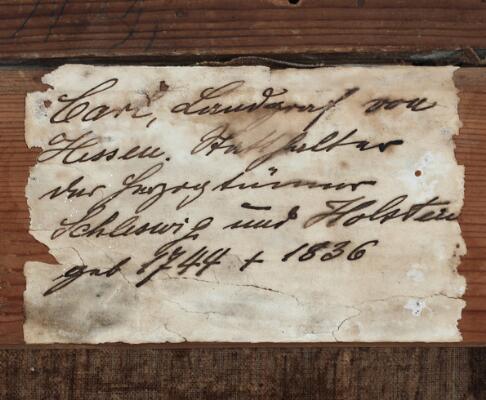 Carl, Landgraf von
Hessen. Statthalter
der Herzogtümer
Schleswig und Holstein
geb 1744 + 1836